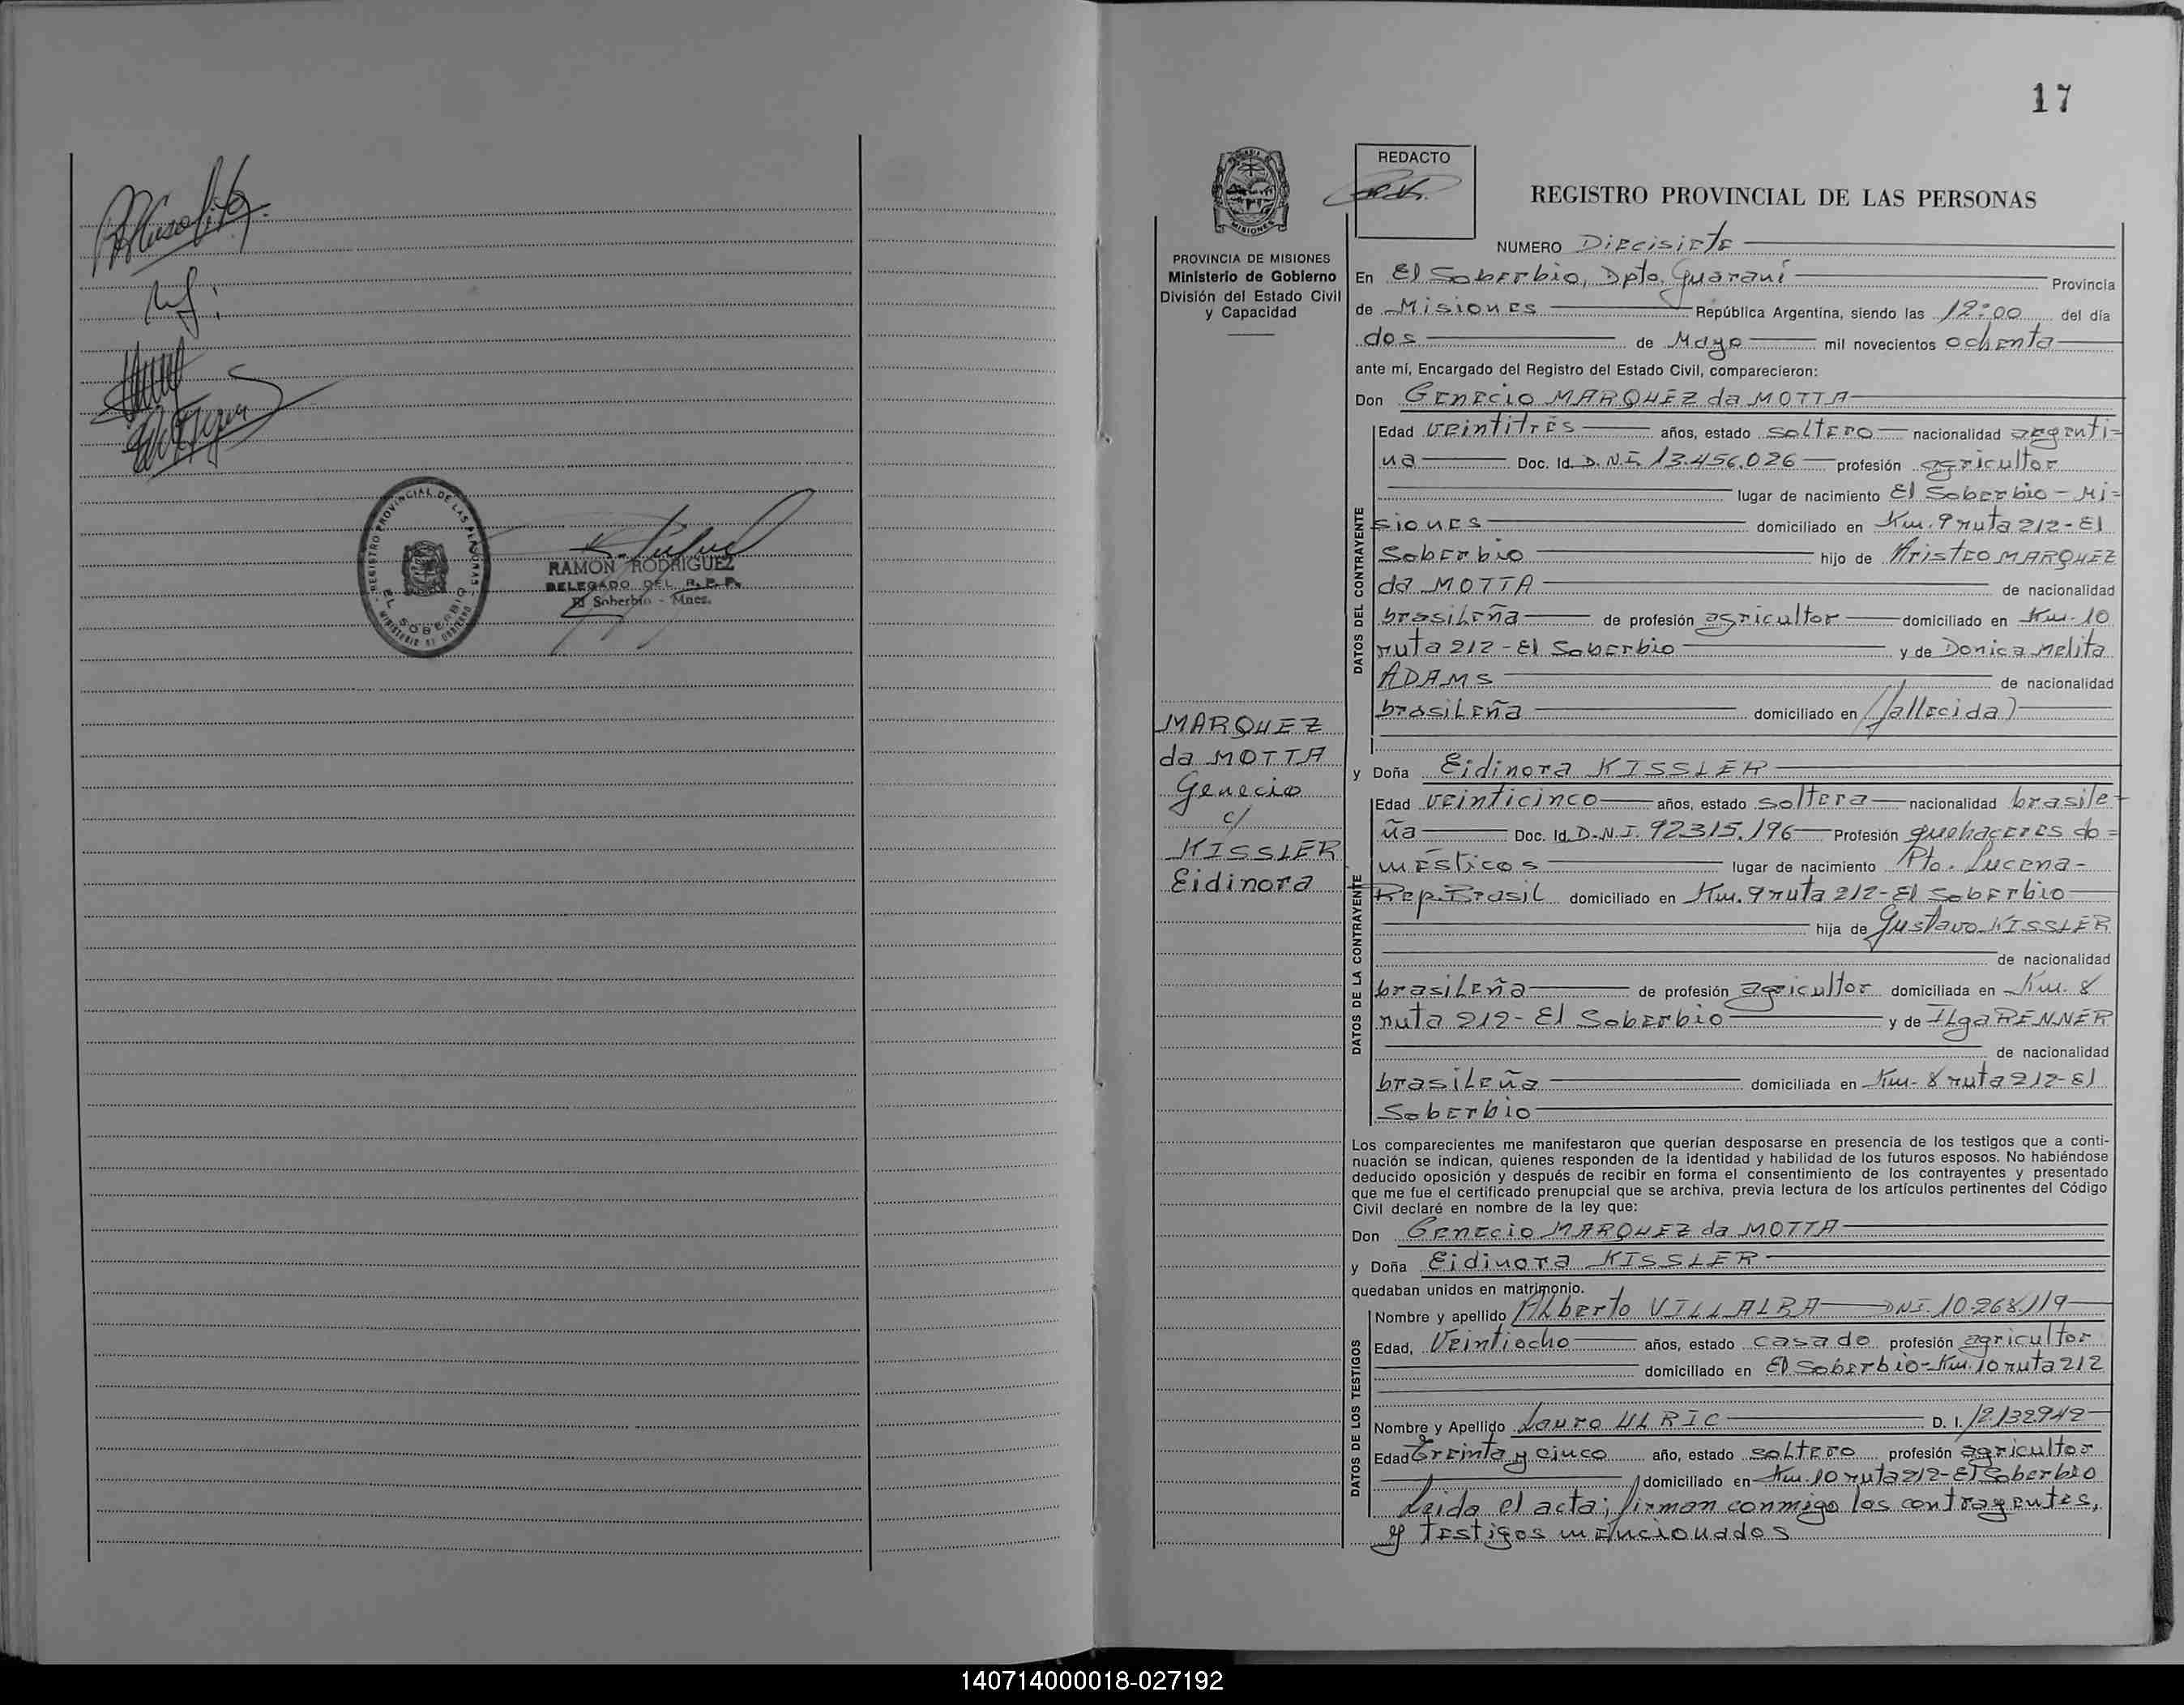 REGISTRO PROVINCIAL DE LAS PERSONAS
EL SOBERBIO
MINISTERIO DE GOBIERNO
RAMON RODRIGUEZ
DELEGADO DEL R. P. P.
El Soberbio - Mnes.
17
MISIONES
REDACTO
REGISTRO PROVINCIAL DE LAS PERSONAS
PROVINCIA DE MISIONES
Ministerio de Gobierno
División del Estado Civil
y Capacidad
MARQUEZ
da MOTTA
Genecio
c/
KISSLER
Eidinora
NUMERO Diecisiete
En El Soberbio, Dpto. Guaraní Provincia
de Misiones República Argentina, siendo las 12:00 del día
dos de Mayo mil novecientos ochenta
ante mí, Encargado del Registro del Estado Civil, comparecieron:
Don Genecio MARQUEZ da MOTTA
DATOS DEL CONTRAYENTE
Edad veintitrés años, estado soltero nacionalidad argenti=
na Doc. Id. D.N.I. 13.456.026 profesión agricultor
lugar de nacimiento El Soberbio - Mi=
siones domiciliado en Km. 9 ruta 212 - El
Soberbio hijo de Aristeo MARQUEZ
da MOTTA de nacionalidad
brasileña de profesión agricultor domiciliado en Km. 10
ruta 212 - El Soberbio y de Donica Melita
ADAMS de nacionalidad
brasileña domiciliado en (fallecida)
y Doña Eidinora KISSLER
DATOS DE LA CONTRAYENTE
Edad veinticinco años, estado soltera nacionalidad brasile-
ña Doc. Id. D.N.I. 92315.196 Profesión quehaceres do=
mésticos lugar de nacimiento Pto. Lucena-
Rep. Brasil domiciliado en Km. 9 ruta 212 - El Soberbio
hija de Gustavo KISSLER
de nacionalidad
brasileña de profesión agricultor domiciliada en Km. 8
ruta 212 - El Soberbio y de Ilga RENNER
de nacionalidad
brasileña domiciliada en Km. 8 ruta 212 - El
Soberbio
Los comparecientes me manifestaron que querían desposarse en presencia de los testigos que a conti-
nuación se indican, quienes responden de la identidad y habilidad de los futuros esposos. No habiéndose
deducido oposición y después de recibir en forma el consentimiento de los contrayentes y presentado
que me fue el certificado prenupcial que se archiva, previa lectura de los artículos pertinentes del Código
Civil declaré en nombre de la ley que:
Don Genecio MARQUEZ da MOTTA
y Doña Eidinora KISSLER
quedaban unidos en matrimonio.
DATOS DE LOS TESTIGOS
Nombre y apellido Alberto VILLALBA DNI. 10.268.119
Edad, Veintiocho años, estado casado profesión agricultor
domiciliado en El Soberbio - Km. 10 ruta 212
Nombre y Apellido Lauro ULRIC D. I. 12132942
Edad treinta y cinco año, estado soltero profesión agricultor
domiciliado en Km. 10 ruta 212 - El Soberbio
Leida el acta; firman conmigo los contrayentes,
y testigos mencionados
140714000018-027192